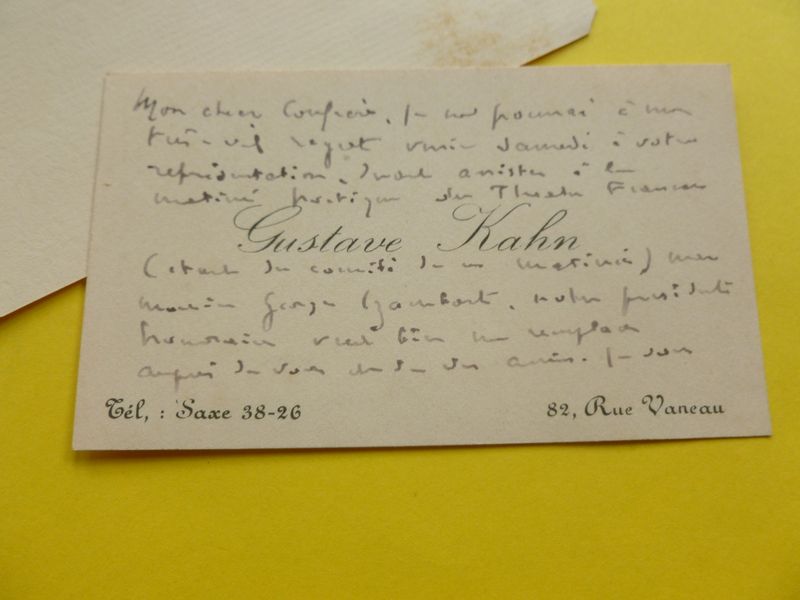 Mon cher Confrère, je ne pourrai à mon
très vif regret venir samedi à votre
représentation, devant assister à la
matinée poétique du Theatre Francais
Gustave Kahn
(étant du comité de ces matinées) mon
George notre présidente
honoraire veut bien me remplacer
auprès de vous et de vos amis. Je vous
Tél, : Saxe 38-26
82, Rue Vaneau